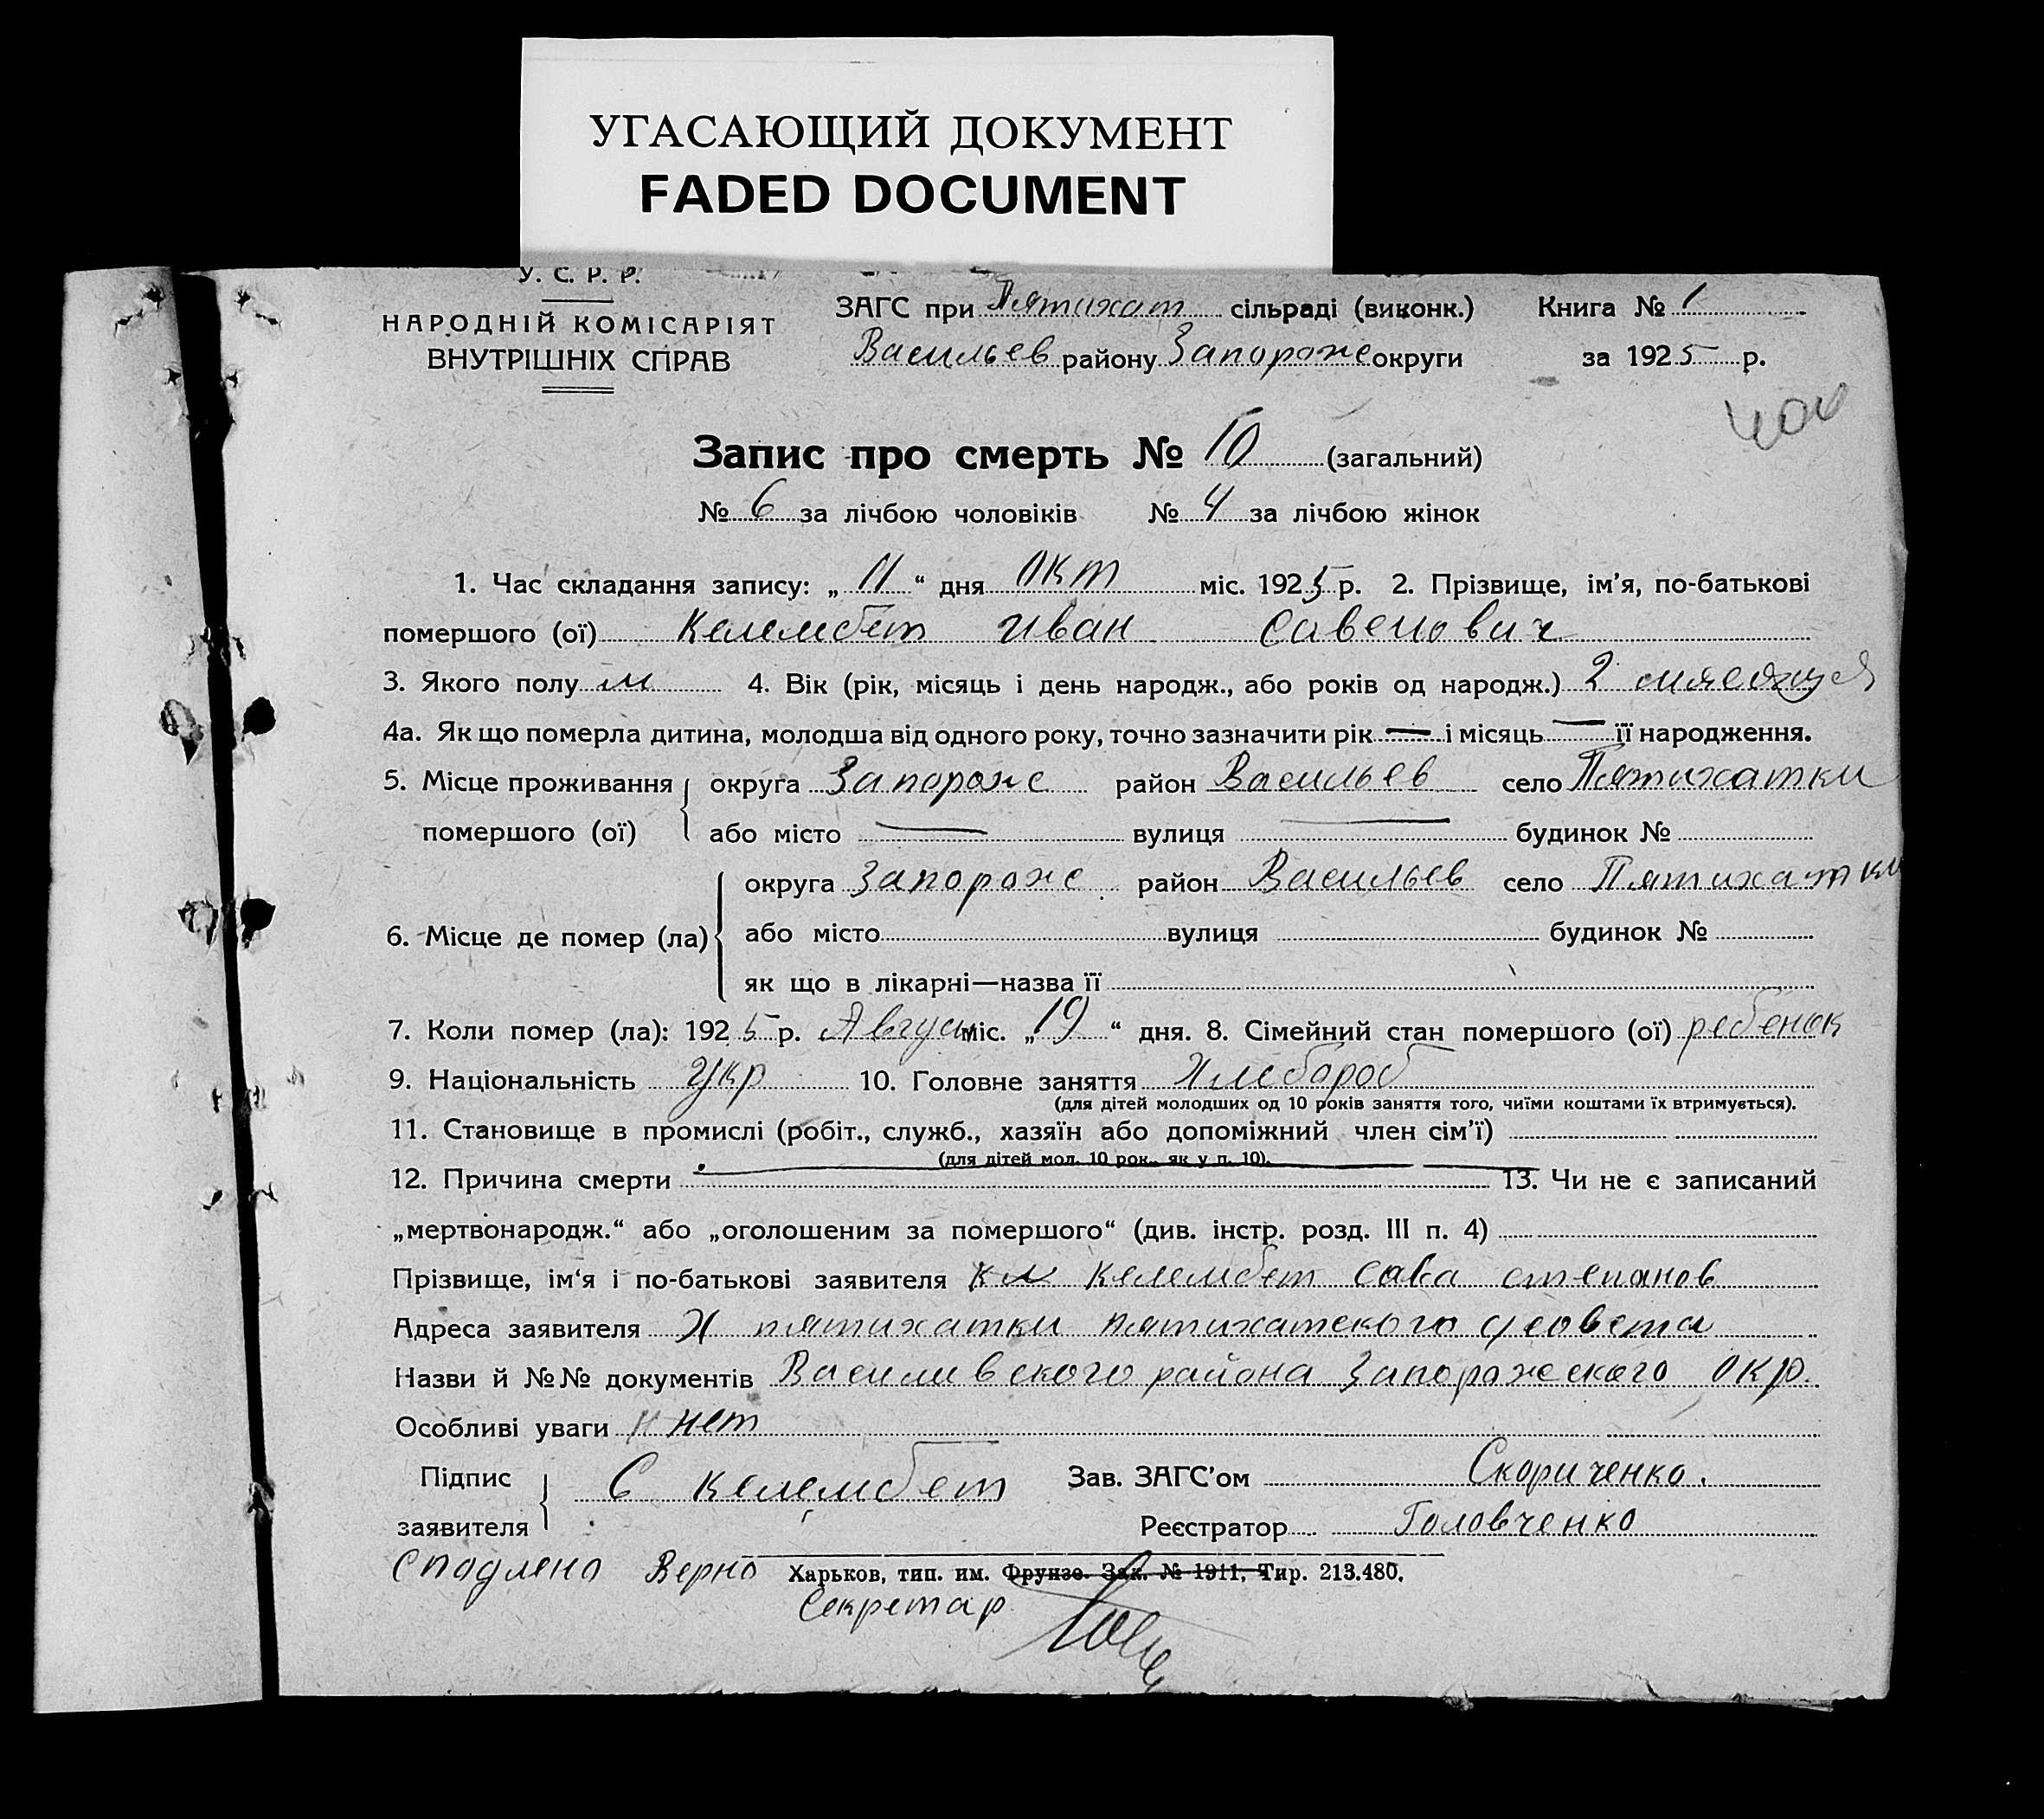 УГАСАЮЩИЙ ДОКУМЕНТ
FADED DOCUMENT
У. С. Р. Р.
НАРОДНІЙ КОМІСАРІЯТ
ВНУТРІШНІХ СПРАВ
ЗАГС при Пятихат сільраді (виконк.)
Васильев району Запороже округи
Книга № 1
за 1925 р.
404
Запис про смерть № 10 (загальний)
№ 6 за лічбою чоловіків № 4 за лічбою жінок
1. Час складання запису: „ 11 “ дня окт міс. 1925 р. 2. Прізвище, ім'я, по-батькові
помершого (ої) Келембет Иван Савенович
3. Якого полу м 4. Вік (рік, місяць і день народж., або років од народж.) 2 мясяця
4а. Як що померла дитина, молодша від одного року, точно зазначити рік — і місяць — її народження.
5. Місце проживання помершого (ої) округа Запороже район Васильев село Пятихатки
або місто — вулиця — будинок №
6. Місце де помер (ла) округа Запороже район Васильев село Пятихатки
або місто вулиця будинок №
як що в лікарні—назва її
7. Коли помер (ла): 1925 р. Август міс. „ 19 “ дня. 8. Сімейний стан помершого (ої) ребенок
9. Національність Укр 10. Головне заняття Хлебороб
(для дітей молодших од 10 років заняття того, чиїми коштами їх втримується).
11. Становище в промислі (робіт., служб., хазяїн або допоміжний член сім'ї)
(для дітей мол. 10 рок., як у п. 10).
12. Причина смерти — 13. Чи не є записаний
„мертвонародж.“ або „оголошеним за помершого“ (див. інстр. розд. III п. 4)
Прізвище, ім'я і по-батькові заявителя Келембет Сава степанов
Адреса заявителя Х пятихатки пятихатского сесовета
Назви й №№ документів Василивского района Запорожского окр.
Особливі уваги нет
Підпис заявителя С Келембет Зав. ЗАГС'ом Скориченко.
Реєстратор Головченко
Сподлено Верно Харьков, тип. им. Фрунзе. Зак. № 1911, Тир. 213.480.
Секретар